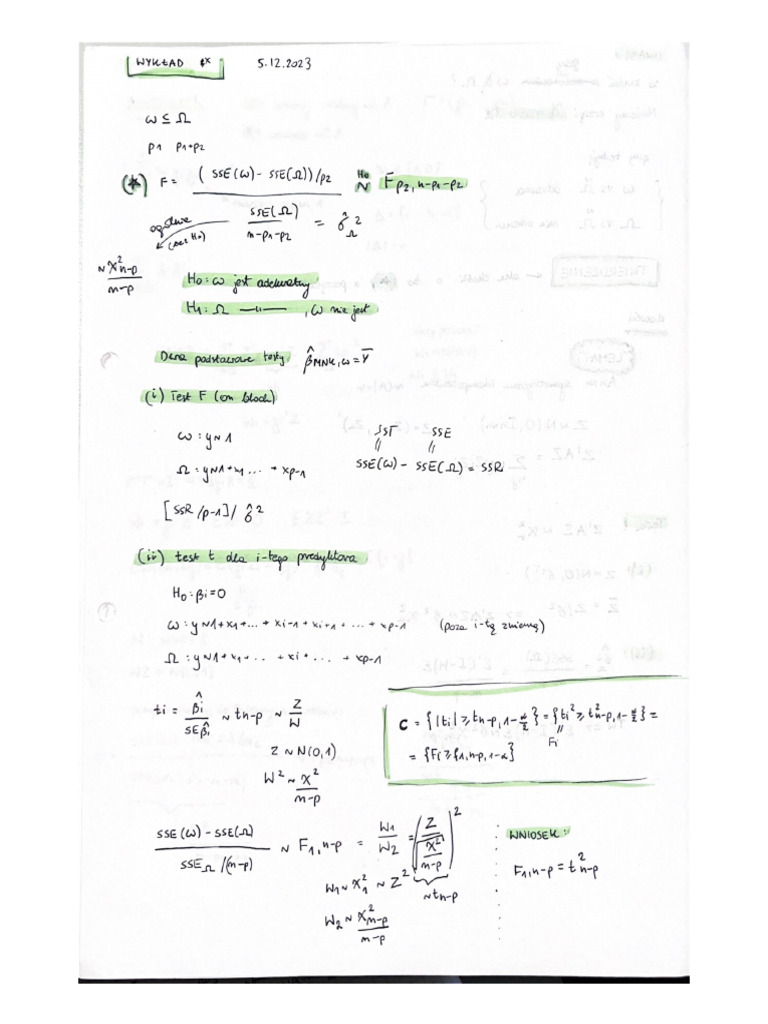 WYKŁAD 5.12.2023
ω ⊆ Ω
p1 p1+p2
(*) F = (SSE(ω) - SSE(Ω))/p2 / SSE(Ω)/n-p1-p2 ~ H0 F p2, n-p1-p2
SSE(Ω)/n-p1-p2 = σ̂²Ω
ogólne
(bez H0)
~ χ²n-p / n-p
H0: ω jest adekwatny
H1: Ω —"—, ω nie jest
Dwa podstawowe testy β̂MNK,ω = Ȳ
(i) Test F (en block)
ω: y~1
Ω: y~1+x1 ... + xp-1
SST SSE
" "
SSE(ω) - SSE(Ω) = SSR
[SSR/p-1] / σ̂²
(ii) test t dla i-tego predyktora
H0: βi = 0
ω: y~1+x1+...+xi-1+xi+1+...+xp-1 (poza i-tą zmienną)
Ω: y~1+x1+...+xi+...+xp-1
ti = β̂i / SEβ̂i ~ tn-p ~ Z/W
Z ~ N(0,1)
W² ~ χ² / n-p
C = {|ti| ≥ tn-p,1-α/2} = {ti² ≥ t²n-p,1-α/2} =
" Fi
= {Fi ≥ f1,n-p,1-α}
SSE(ω) - SSE(Ω) / SSEΩ/(n-p) ~ F1,n-p = W1/W2 = (Z / √(χ²/n-p))²
W1 ~ χ²1 ~ Z² ~ tn-p
W2 ~ χ²n-p / n-p
WNIOSEK:
F1,n-p = t²n-p